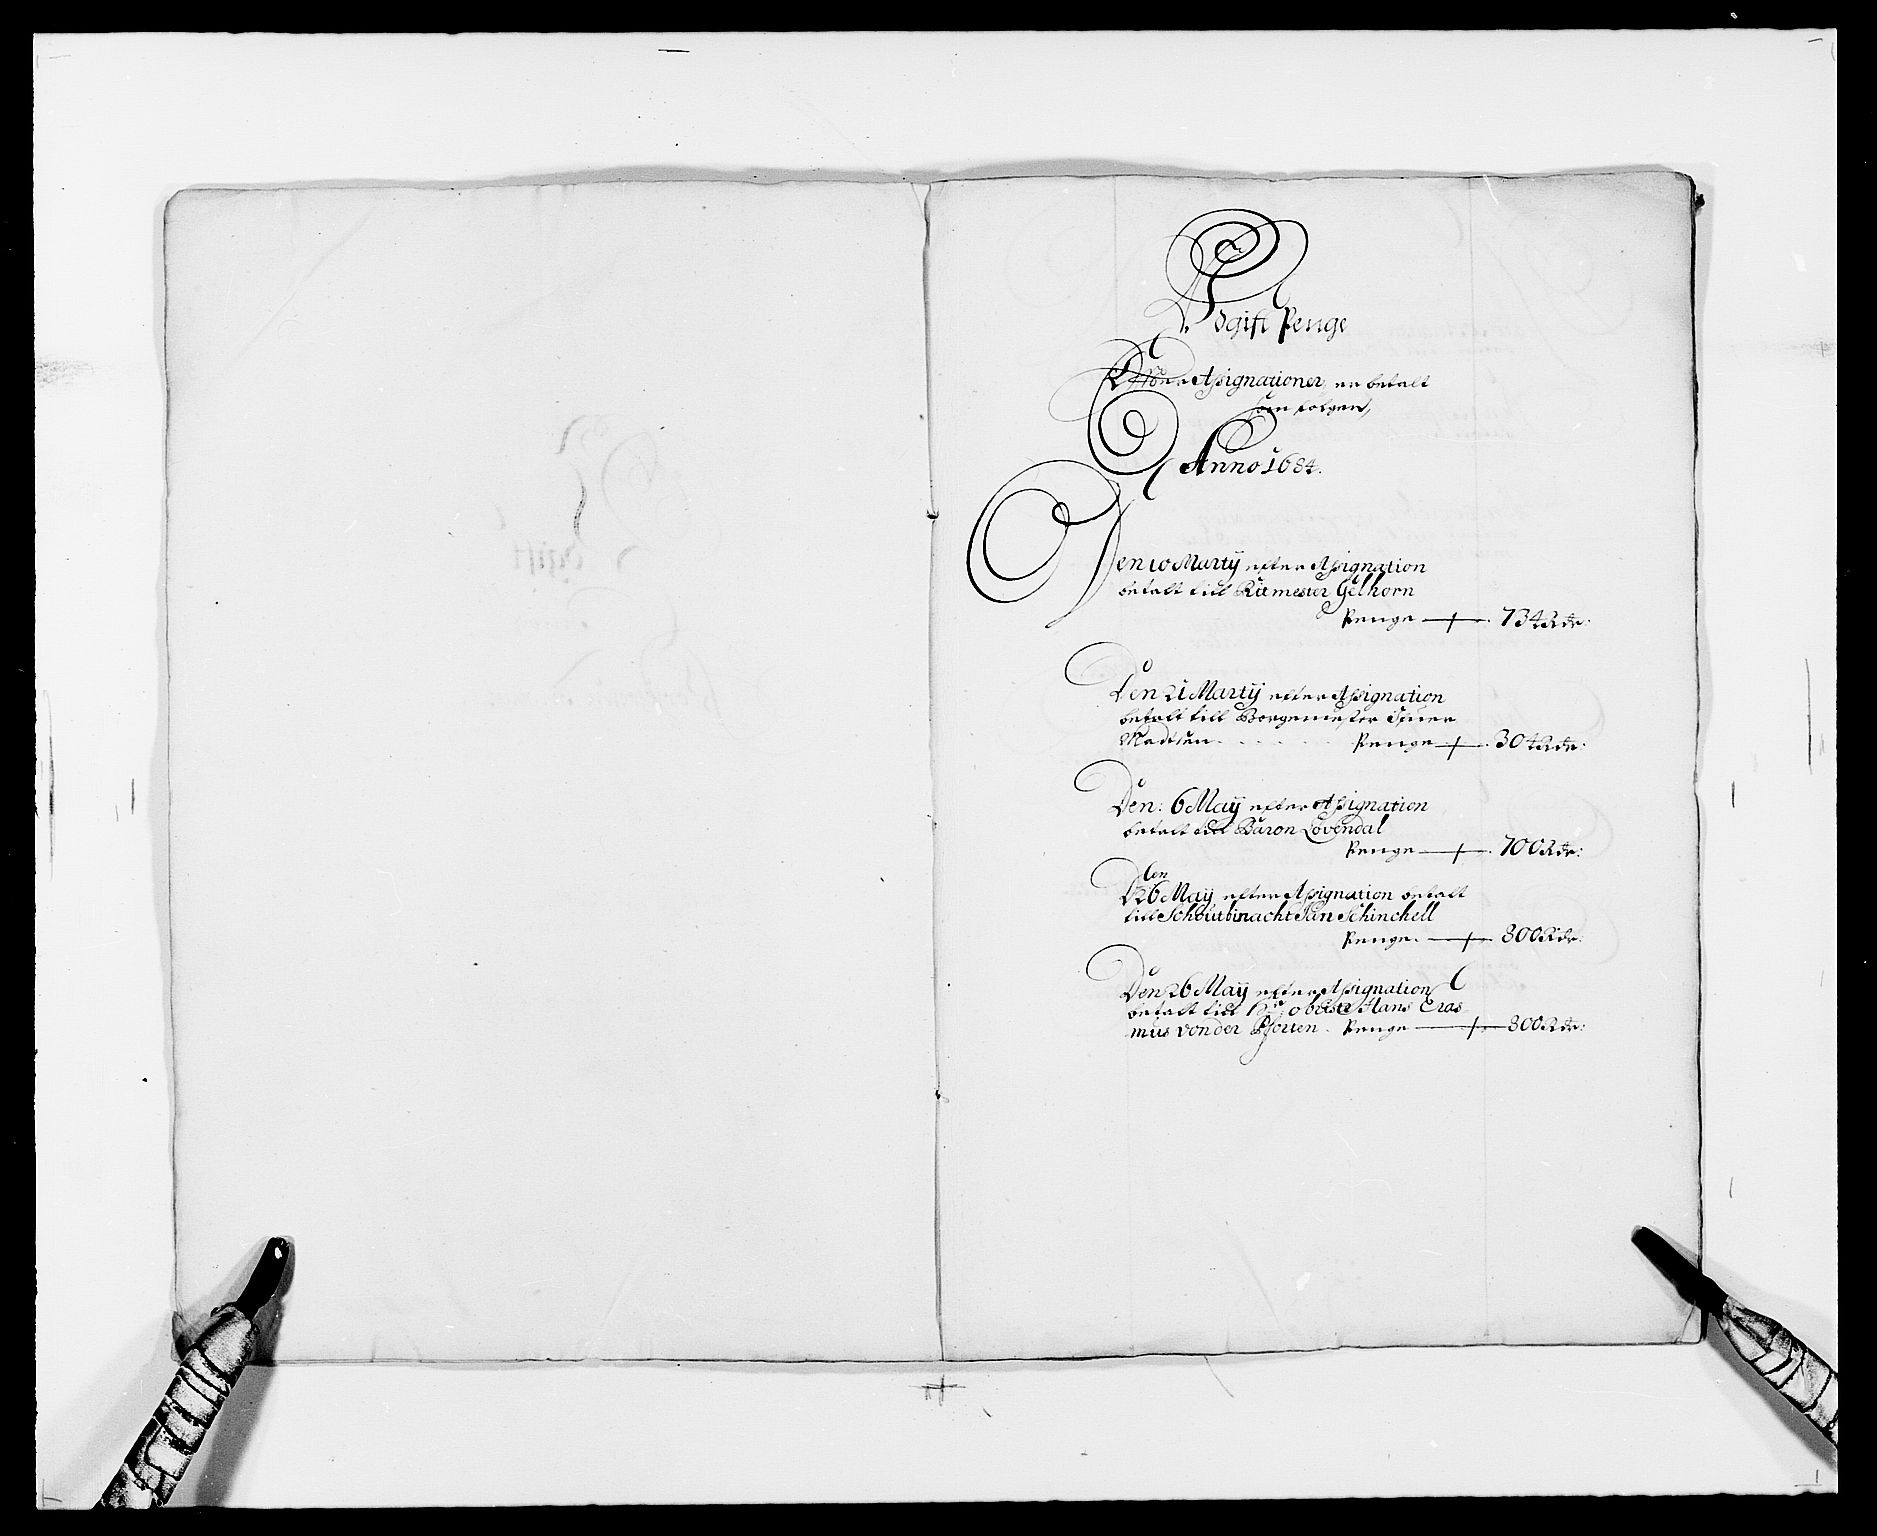 Udgift Penge
Effter Assignationer er betalt
som folger,
Anno 1684.
Den 10 Martÿ efter Assignation
betalt till Ritmester Gelhorn
Penge 734 Rdr:
Den 21 Martÿ efter Assignation
betalt till Borgemester Ifuer
Madtsen Penge 304 Rdr:
Den: 6 Maÿ efter Assignation
betalt till Baron Lövendal
Penge 700 Rdr:
Den
26 Maÿ efter Assignation betalt
till Schoutbinacht Jan Schinchell
Penge 800 Rdr:
Den 26 Maÿ efter Assignation
betalt till Hr: oberste Hans Eras
mus von der Pforten Penge 800 Rdr: